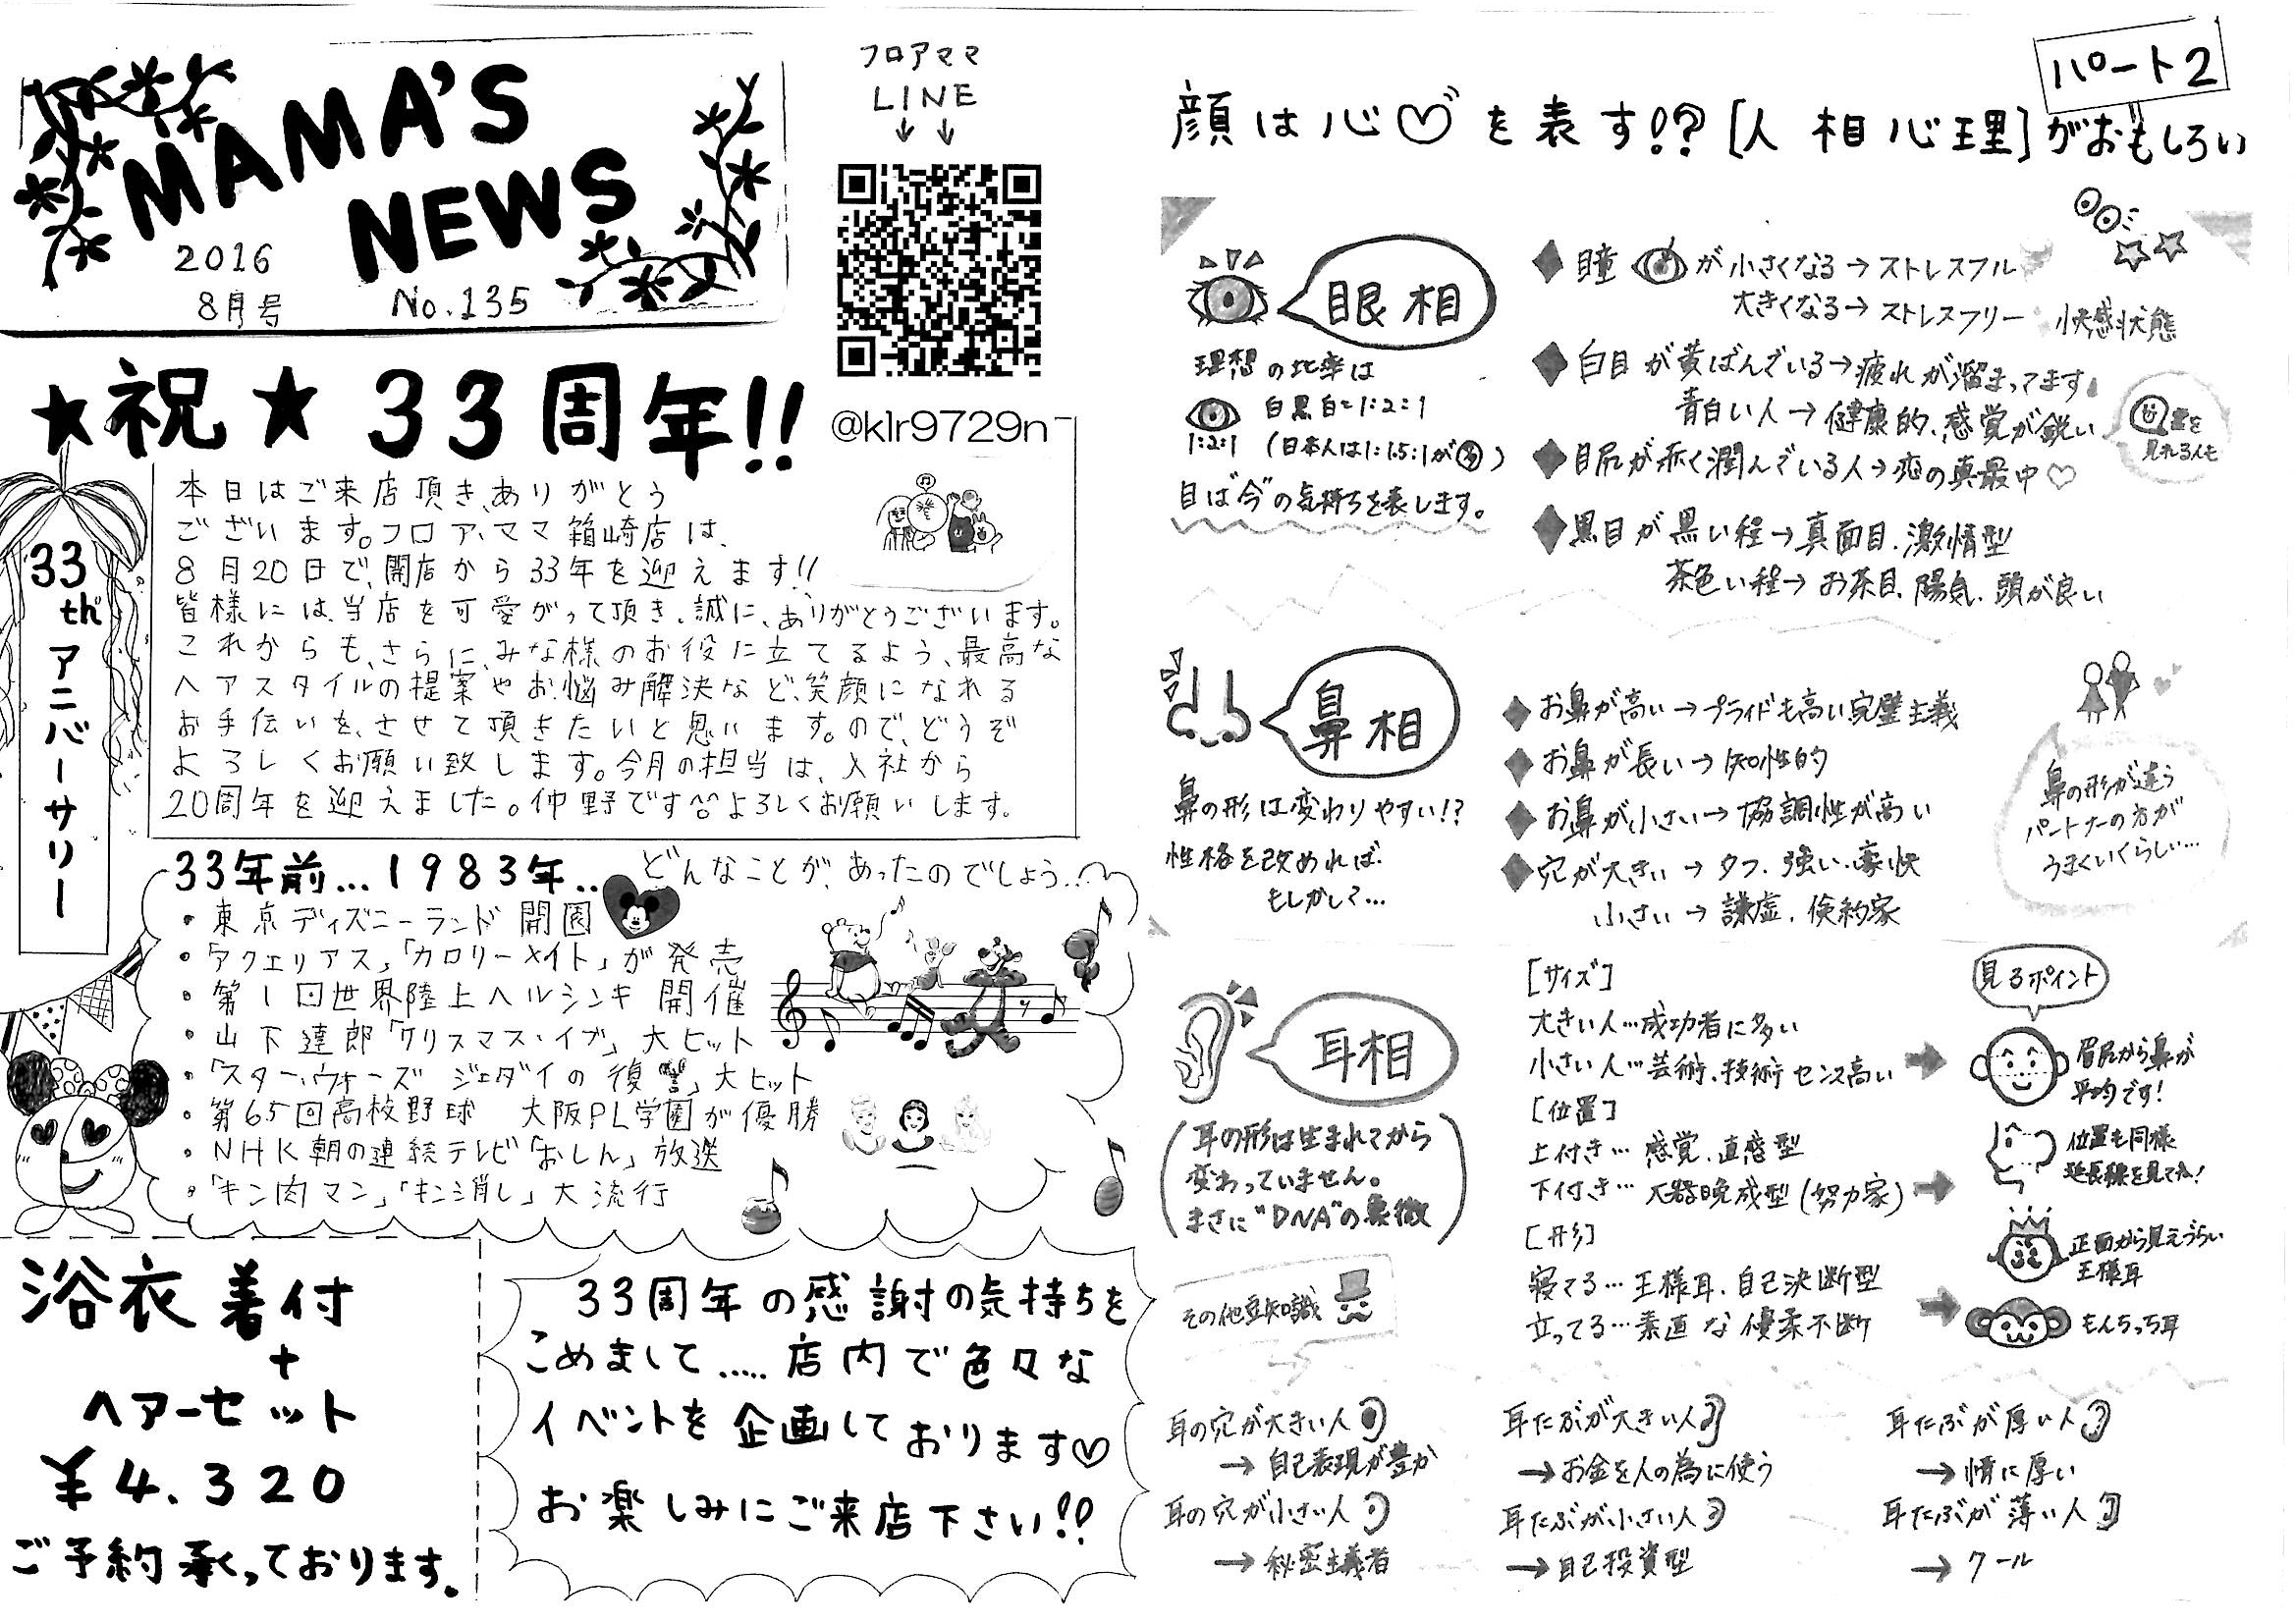 MAMA'S
NEWS
2016
8月号
No.135
フロアママ
LINE
@klr9729n
★祝★33周年!!
33
th
アニバーサリー
本日はご来店頂き、ありがとう
ございます。フロア、ママ箱崎店は、
8月20日で、開店から33年を迎えます!!
皆様には、当店を可愛がって頂き、誠に、ありがとうございます。
これからも、さらに、みな様のお役に立てるよう、最高な
ヘアスタイルの提案やお悩み解決など、笑顔になれる
お手伝いを、させて頂きたいと思います。ので、どうぞ
よろしくお願い致します。今月の担当は、入社から
20周年を迎えました。仲野です^^よろしくお願いします。
33年前...1983年..どんなことが、あったのでしょう...
・東京ディズニーランド開園
・「アクエリアス」「カロリーメイト」が発売
・第1回世界陸上ヘルシンキ開催
・山下達郎「クリスマス・イブ」大ヒット
・「スター・ウォーズ ジェダイの復讐」大ヒット
・第65回高校野球 大阪PL学園が優勝
・NHK朝の連続テレビ「おしん」放送
・「キン肉マン」「キン消し」大流行
浴衣着付
+
ヘアーセット
¥4.320
ご予約承っております。
33周年の感謝の気持ちを
こめまして.....店内で色々な
イベントを企画しております♡
お楽しみにご来店下さい!!
パート2
顔は心♡を表す!?[人相心理]がおもしろい
眼相
理想の比率は
白黒白=1:2:1
1:2:1 (日本人は1:1.5:1が多)
目は"今"の気持ちを表します。
◆瞳が小さくなる→ストレスフル
大きくなる→ストレスフリー 快感状態
◆白目が黄ばんでいる→疲れが溜まってます
青白い人→健康的、感覚が鋭い
霊を
見れる人も
◆目尻が赤く潤んでいる人→恋の真最中♡
◆黒目が黒い程→真面目、激情型
茶色い程→お茶目、陽気、頭が良い
鼻相
鼻の形は変わりやすい!?
性格を改めれば、
もしかして...
◆お鼻が高い→プライドも高い完璧主義
◆お鼻が長い→知性的
◆お鼻が小さい→協調性が高い
◆穴が大きい→タフ、強い、豪快
小さい→謙虚、倹約家
鼻の形が違う
パートナーの方が
うまくいくらしい...
耳相
(耳の形は生まれてから
変わっていません。
まさに"DNA"の象徴)
[サイズ]
大きい人…成功者に多い
小さい人…芸術、技術センス高い
[位置]
上付き…感覚、直感型
下付き…大器晩成型(努力家)
[形]
寝てる…王様耳、自己決断型
立ってる…素直な優柔不断
見るポイント
眉尻から鼻が
平均です!
位置も同様
延長線を見てね!
正面から見えづらい
王様耳
もんちっち耳
その他豆知識
耳の穴が大きい人
→自己表現が豊か
耳の穴が小さい人
→秘密主義者
耳たぶが大きい人
→お金を人の為に使う
耳たぶが小さい人
→自己投資型
耳たぶが厚い人
→情に厚い
耳たぶが薄い人
→クール